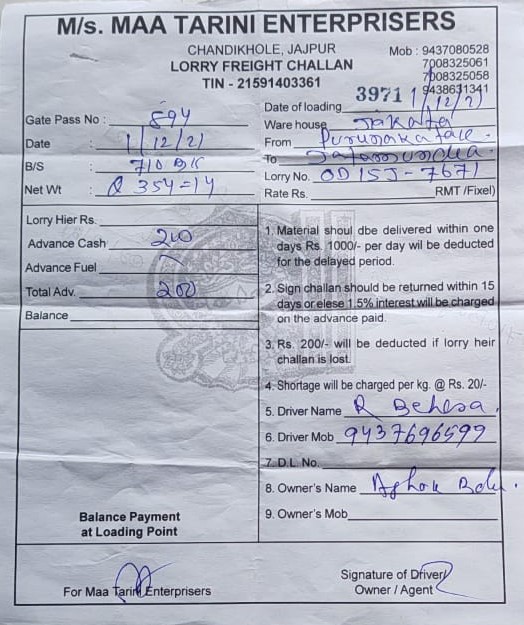 M/s. MAA TARINI ENTERPRISERS
CHANDIKHOLE, JAJPUR
LORRY FREIGHT CHALLAN
TIN - 21591403361
Mob : 9437080528
7008325061
7008325058
9438631341
3971
Gate Pass No : 894
Date : 1/12/21
B/S : 710 BK
Net Wt : Q 354=14
Date of loading 1/12/21
Ware house
From
To
Lorry No. OD15J-7671
Rate Rs. RMT /Fixel)
Lorry Hier Rs.
Advance Cash 200
Advance Fuel
Total Adv. 200
Balance
Balance Payment
at Loading Point
1. Material shoul dbe delivered within one
days Rs. 1000/- per day wil be deducted
for the delayed period.
2. Sign challan should be returned within 15
days or elese 1.5% interest will be charged
on the advance paid.
3. Rs. 200/- will be deducted if lorry heir
challan is lost.
4. Shortage will be charged per kg. @ Rs. 20/-
5. Driver Name R Behera
6. Driver Mob 9437696599
7. D.L. No.
8. Owner's Name Ashok
9. Owner's Mob
For Maa Tarini Enterprisers
Signature of Driver/
Owner / Agent